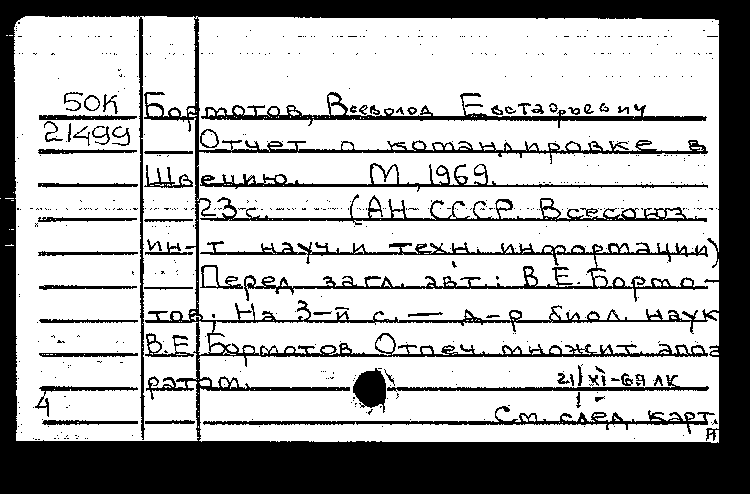 50К Бормотов, Всеволод Евстафьевич
21499 Отчет о командировке в
Швецию. М., 1969.
23 с. (АН СССР. Всесоюз.
ин-т науч. и техн. информации)
Перед загл. авт.: В.Е. Бормо-
тов; На 3-й с. — д-р биол. наук
В.Е. Бормотов. Отпеч. множит. аппа
ратом. 21/XI-69 ЛК
4 См. след. карт.